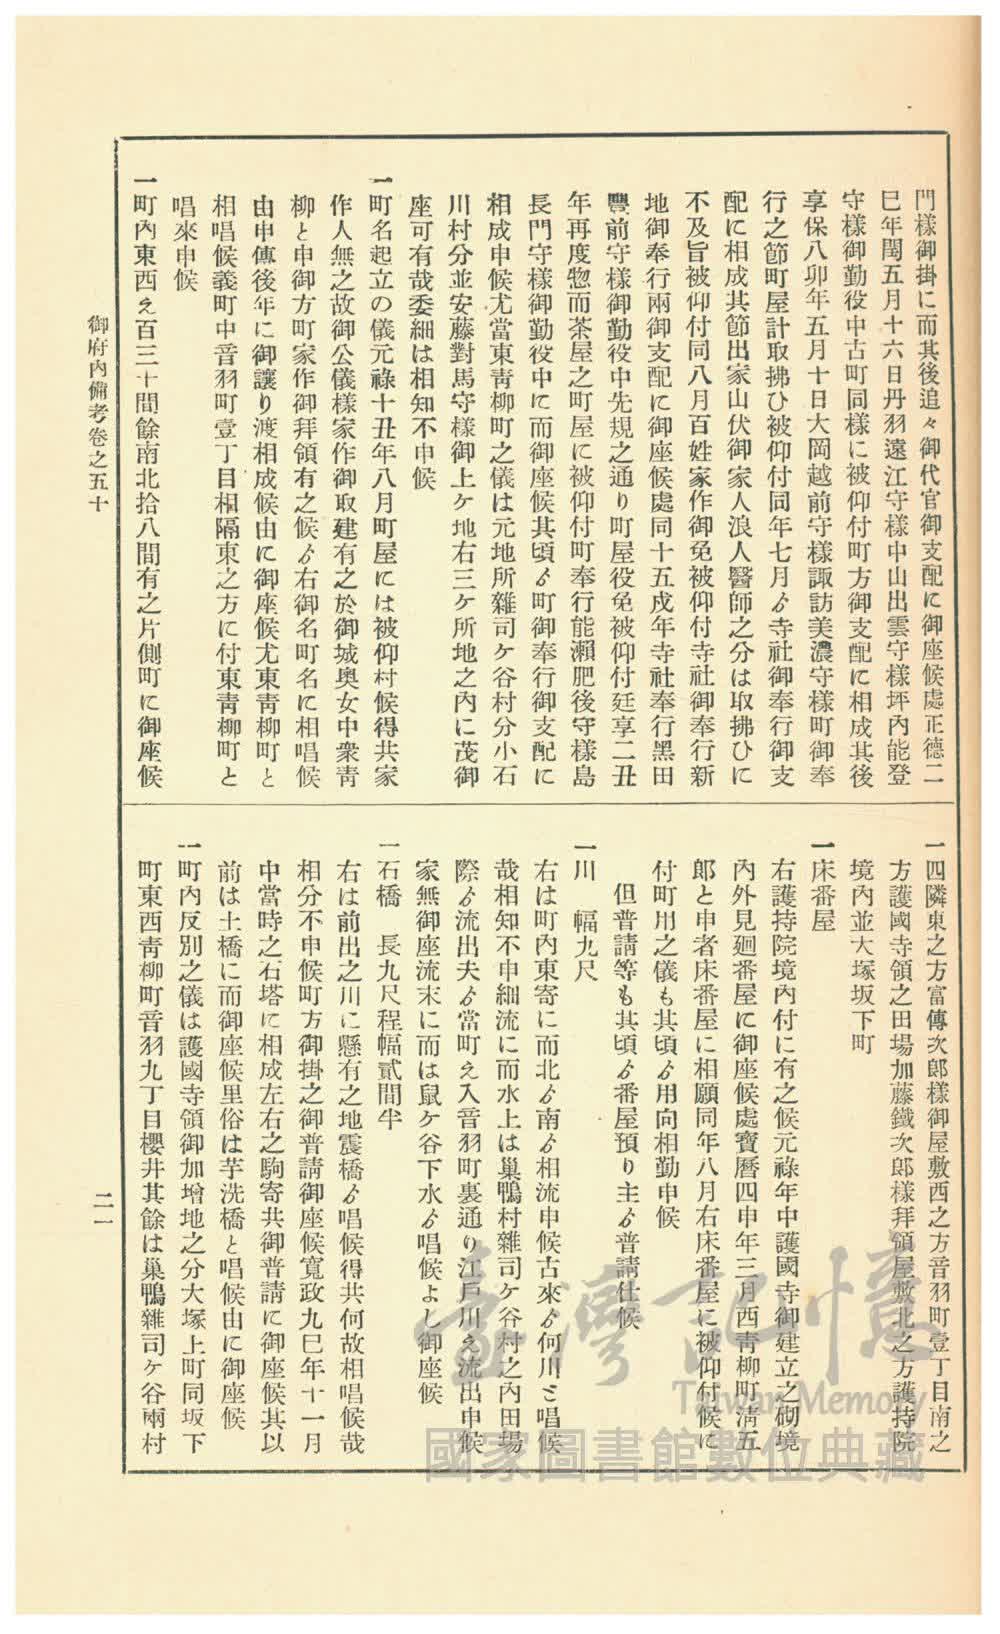 門樣御掛に而其後追々御代官御支配に御座候處正德二
巳年閏五月十六日丹羽遠江守樣中山出雲守樣坪內能登
守樣御勤役中古町同樣に被仰付町方御支配に相成其後
享保八卯年五月十日大岡越前守樣諏訪美濃守樣町御奉
行之節町屋計取拂ひ被仰付同年七月ゟ寺社御奉行御支
配に相成其節出家山伏御家人浪人醫師之分は取拂ひに
不及旨被仰付同八月百姓家作御免被仰付寺社御奉行新
地御奉行兩御支配に御座候處同十五戌年寺社奉行黑田
豐前守樣御勤役中先規之通り町屋役免被仰付延享二丑
年再度惣而茶屋之町屋に被仰付町奉行能瀨肥後守樣島
長門守樣御勤役中に而御座候其頃ゟ町御奉行御支配に
相成申候尤當東靑柳町之儀は元地所雜司ケ谷村分小石
川村分並安藤對馬守樣御上ケ地右三ケ所地之內に茂御
座可有哉委細は相知不申候
一町名起立の儀元祿十丑年八月町屋には被仰村候得共家
作人無之故御公儀樣家作御取建有之於御城奧女中衆靑
柳と申御方町家作御拜領有之候ゟ右御名町名に相唱候
由申傳後年に御讓り渡相成候由に御座候尤東靑柳町と
相唱候義町中音羽町壹丁目相隔東之方に付東靑柳町と
唱來申候
一町內東西え百三十間餘南北拾八間有之片側町に御座候
一四隣東之方富傳次郞樣御屋敷西之方音羽町壹丁目南之
方護國寺領之田場加藤鐵次郞樣拜領屋敷北之方護持院
境內並大塚坂下町
一床番屋
右護持院境內付に有之候元祿年中護國寺御建立之砌境
內外見廻番屋に御座候處寶曆四申年三月西靑柳町淸五
郞と申者床番屋に相願同年八月右床番屋に被仰付候に
付町用之儀も其頃ゟ用向相勤申候
但普請等も其頃ゟ番屋預り主ゟ普請仕候
一川　幅九尺
右は町內東寄に而北ゟ南ゟ相流申候古來ゟ何川と唱候
哉相知不申細流に而水上は巢鴨村雜司ケ谷村之內田場
際ゟ流出夫ゟ當町え入音羽町裏通り江戶川え流出申候
家無御座流末に而は鼠ケ谷下水ゟ唱候よし御座候
一石橋　長九尺程幅貳間半
右は前出之川に懸有之地震橋ゟ唱候得共何故相唱候哉
相分不申候町方御掛之御普請御座候寬政九巳年十一月
中當時之石塔に相成左右之駒寄共御普請に御座候其以
前は土橋に而御座候里俗は芋洗橋と唱候由に御座候
一町內反別之儀は護國寺領御加增地之分大塚上町同坂下
町東西靑柳町音羽九丁目櫻井其餘は巢鴨雜司ケ谷兩村
御府內備考卷之五十
二一
臺灣記憶
Taiwan Memory
國家圖書館數位典藏